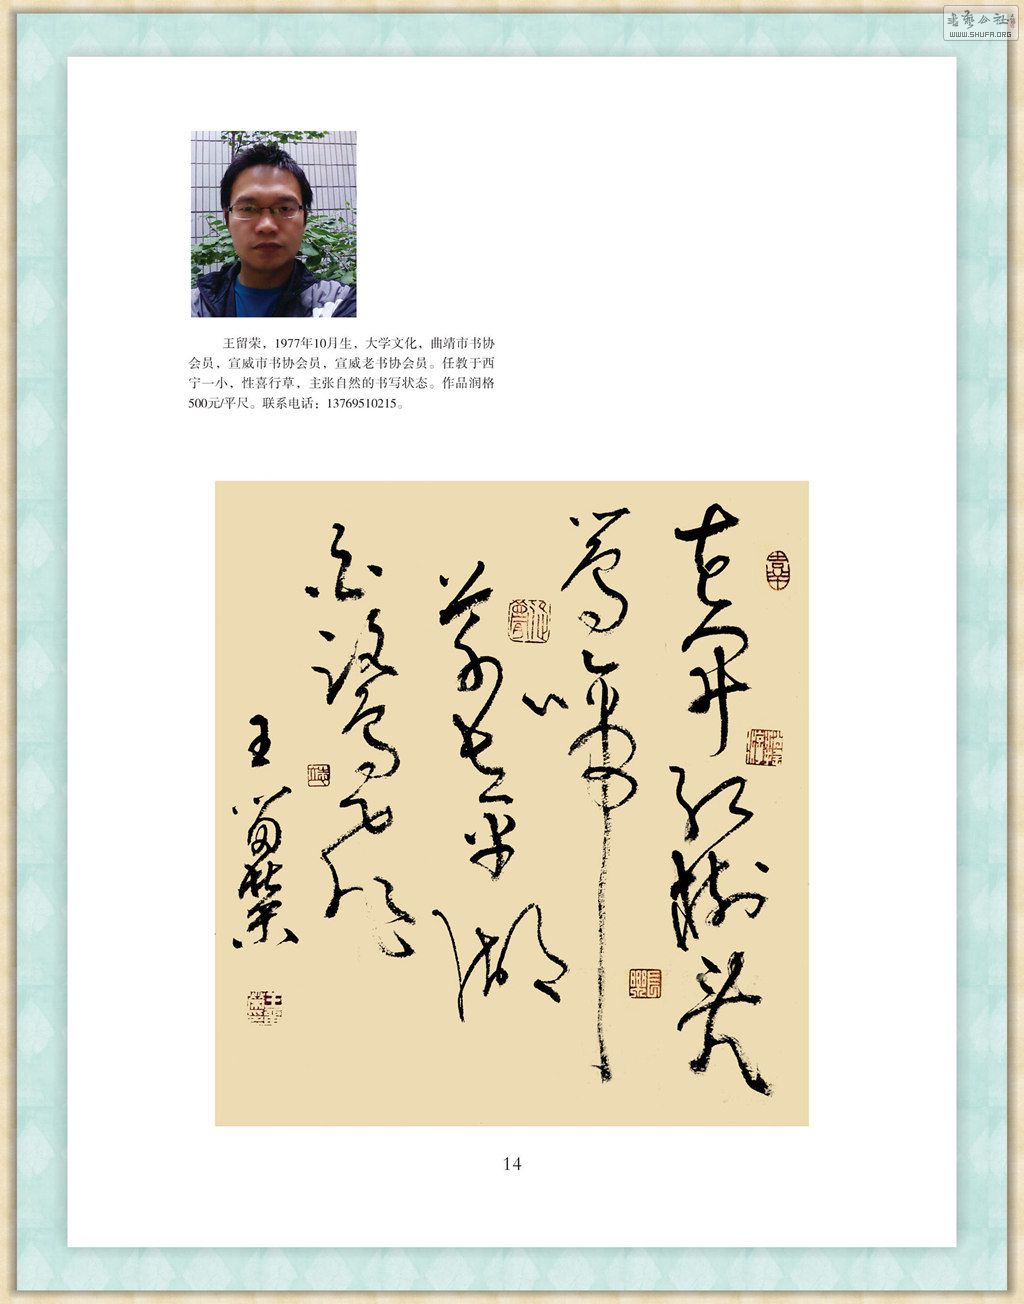 书艺公社
WWW.SHUFA.ORG
王留荣，1977年10月生，大学文化，曲靖市书协
会员，宣威市书协会员，宣威老书协会员。任教于西
宁一小，性喜行草，主张自然的书写状态。作品润格
500元/平尺。联系电话：13769510215。
花开红树乱
莺啼
草长平湖
白鹭飞
王留荣
14